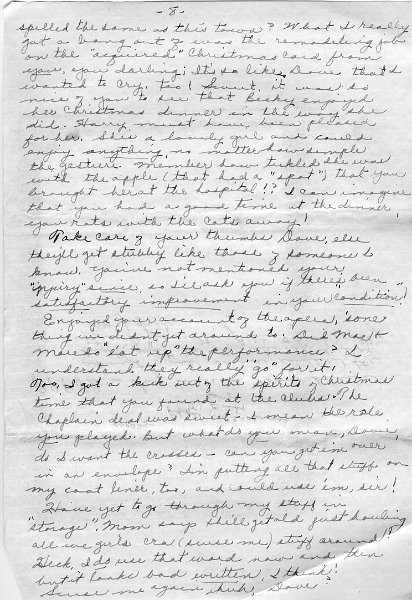 - 8 -
spelled the same as this town? What I really
got a bang out of was the remodeling job
on the "acquired" Christmas card from
you, you darling; Its so like Dave that I
wanted to cry, too! Sweet, it was so
nice of you to see that Becky enjoyed
her Christmas dinner in the way she
did. Harry must have been pleased
for her. She's a lovely girl and could
enjoy anything no matter how simple
the gesture. Member how tickled she was
with the apple (that had a "spot") that you
brought her at the hospital!? I can imagine
that you had a good time at the dinner,
you rats with the cats away!
Take care of your thumbs Dave, else
they'll get stubby like those of someone I
know. You've not mentioned your
"injury" since, so I'll ask you if there's been
satisfactory improvement in your condition!
Enjoyed your account of the opera, 'some
thing we didn't get around to. Did Mac &
"eat up" the performance? I
understand they really "go" for it,
Too, I got a kick out of the spirits of Christmas
time that you found at the clubs. The
Chaplain deal was sweet - I mean the role
you played. But what do you mean, Dave,
do I want the crosses - can you get 'em over
in an envelope? I'm putting all that stuff on
my coat liner, too, and could use 'em, sir!
Have yet to go through my stuff in
"storage". Mom says she'll get old just hauling
all we girls cra (scuse me) stuff around!
Heck, I do use that word now and then
but it looks bad written, I think!
Scuse me again, huh, Dave?